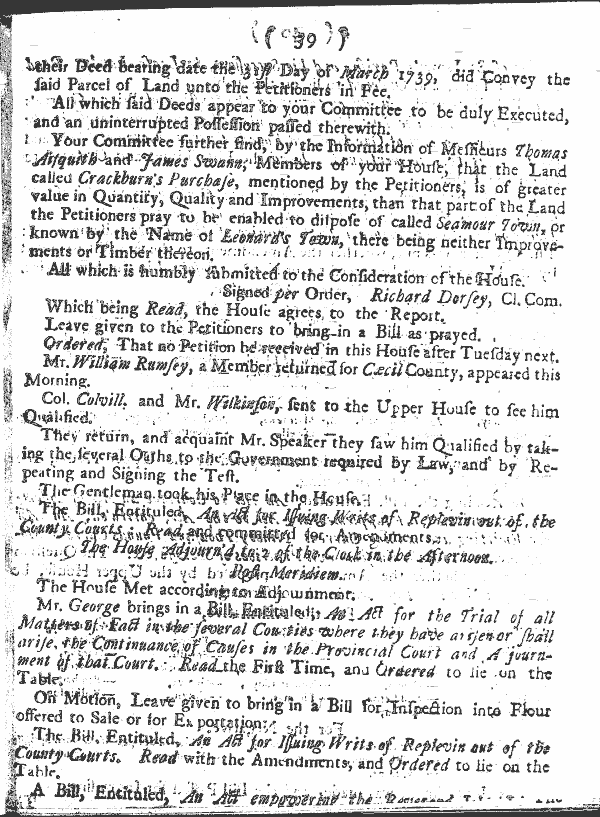 ( 39 )
their Deed bearing date the 31st Day of March 1739, did Convey the
said Parcel of Land unto the Petitioners in Fee.
All which said Deeds appear to your Committee to be duly Executed,
and an uninterrupted Possession passed therewith.
Your Committee further find, by the Information of Messieurs Thomas
Aisquith and James Swann, Members of your House, that the Land
called Crackburn's Purchase, mentioned by the Petitioners, is of greater
value in Quantity, Quality and Improvements, than that part of the Land
the Petitioners pray to be enabled to dispose of called Seamour Town, or
known by the Name of Leonard's Town, there being neither Improve-
ments or Timber thereon.
All which is humbly submitted to the Consideration of the House.
Signed per Order, Richard Dorsey, Cl. Com.
Which being Read, the House agrees to the Report.
Leave given to the Petitioners to bring in a Bill as prayed.
Ordered, That no Petition be received in this House after Tuesday next.
Mr. William Rumsey, a Member returned for Cæcil County, appeared this
Morning.
Col. Colvill, and Mr. Wilkinson, sent to the Upper House to see him
Qualified.
They return, and acquaint Mr. Speaker they saw him Qualified by tak-
ing the several Oaths to the Government required by Law, and by Re-
peating and Signing the Test.
The Gentleman took his Place in the House.
The Bill, Entituled, An Act for Issuing Writs of Replevin out of the
County Courts. Read and committed for Amendments.
The House Adjourn'd to 2 of the Clock in the Afternoon.
Post Meridiem.
The House Met according to Adjournment.
Mr. George brings in a Bill, Entituled, An Act for the Trial of all
Matters of Fact in the several Counties where they have arisen or shall
arise, the Continuance of Causes in the Provincial Court and Adjourn-
ment of that Court. Read the First Time, and Ordered to lie on the
Table.
On Motion, Leave given to bring in a Bill for Inspection into Flour
offered to Sale or for Exportation.
The Bill, Entituled, An Act for Issuing Writs of Replevin out of the
County Courts. Read with the Amendments, and Ordered to lie on the
Table.
A Bill, Entituled, An Act empowering the Reverend